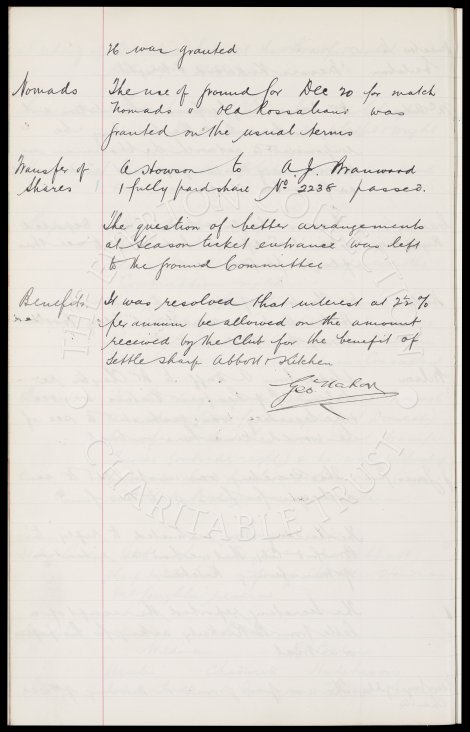 It was granted
Nomads The use of ground for Dec 20 for match
Nomads v Old Rossalians was
granted on the usual terms
Transfer of A Howson to A. J. Branwood
Shares 1 fully paid share No 2238 passed.
The question of better arrangements
at season ticket entrance was left
to the Ground Committee
Benefits It was resolved that interest at 2½%
per annum be allowed on the amount
received by the Club for the benefit of
Settle Sharp Abbott & Kitchen
Geo Mahon
CHARITABLE TRUST